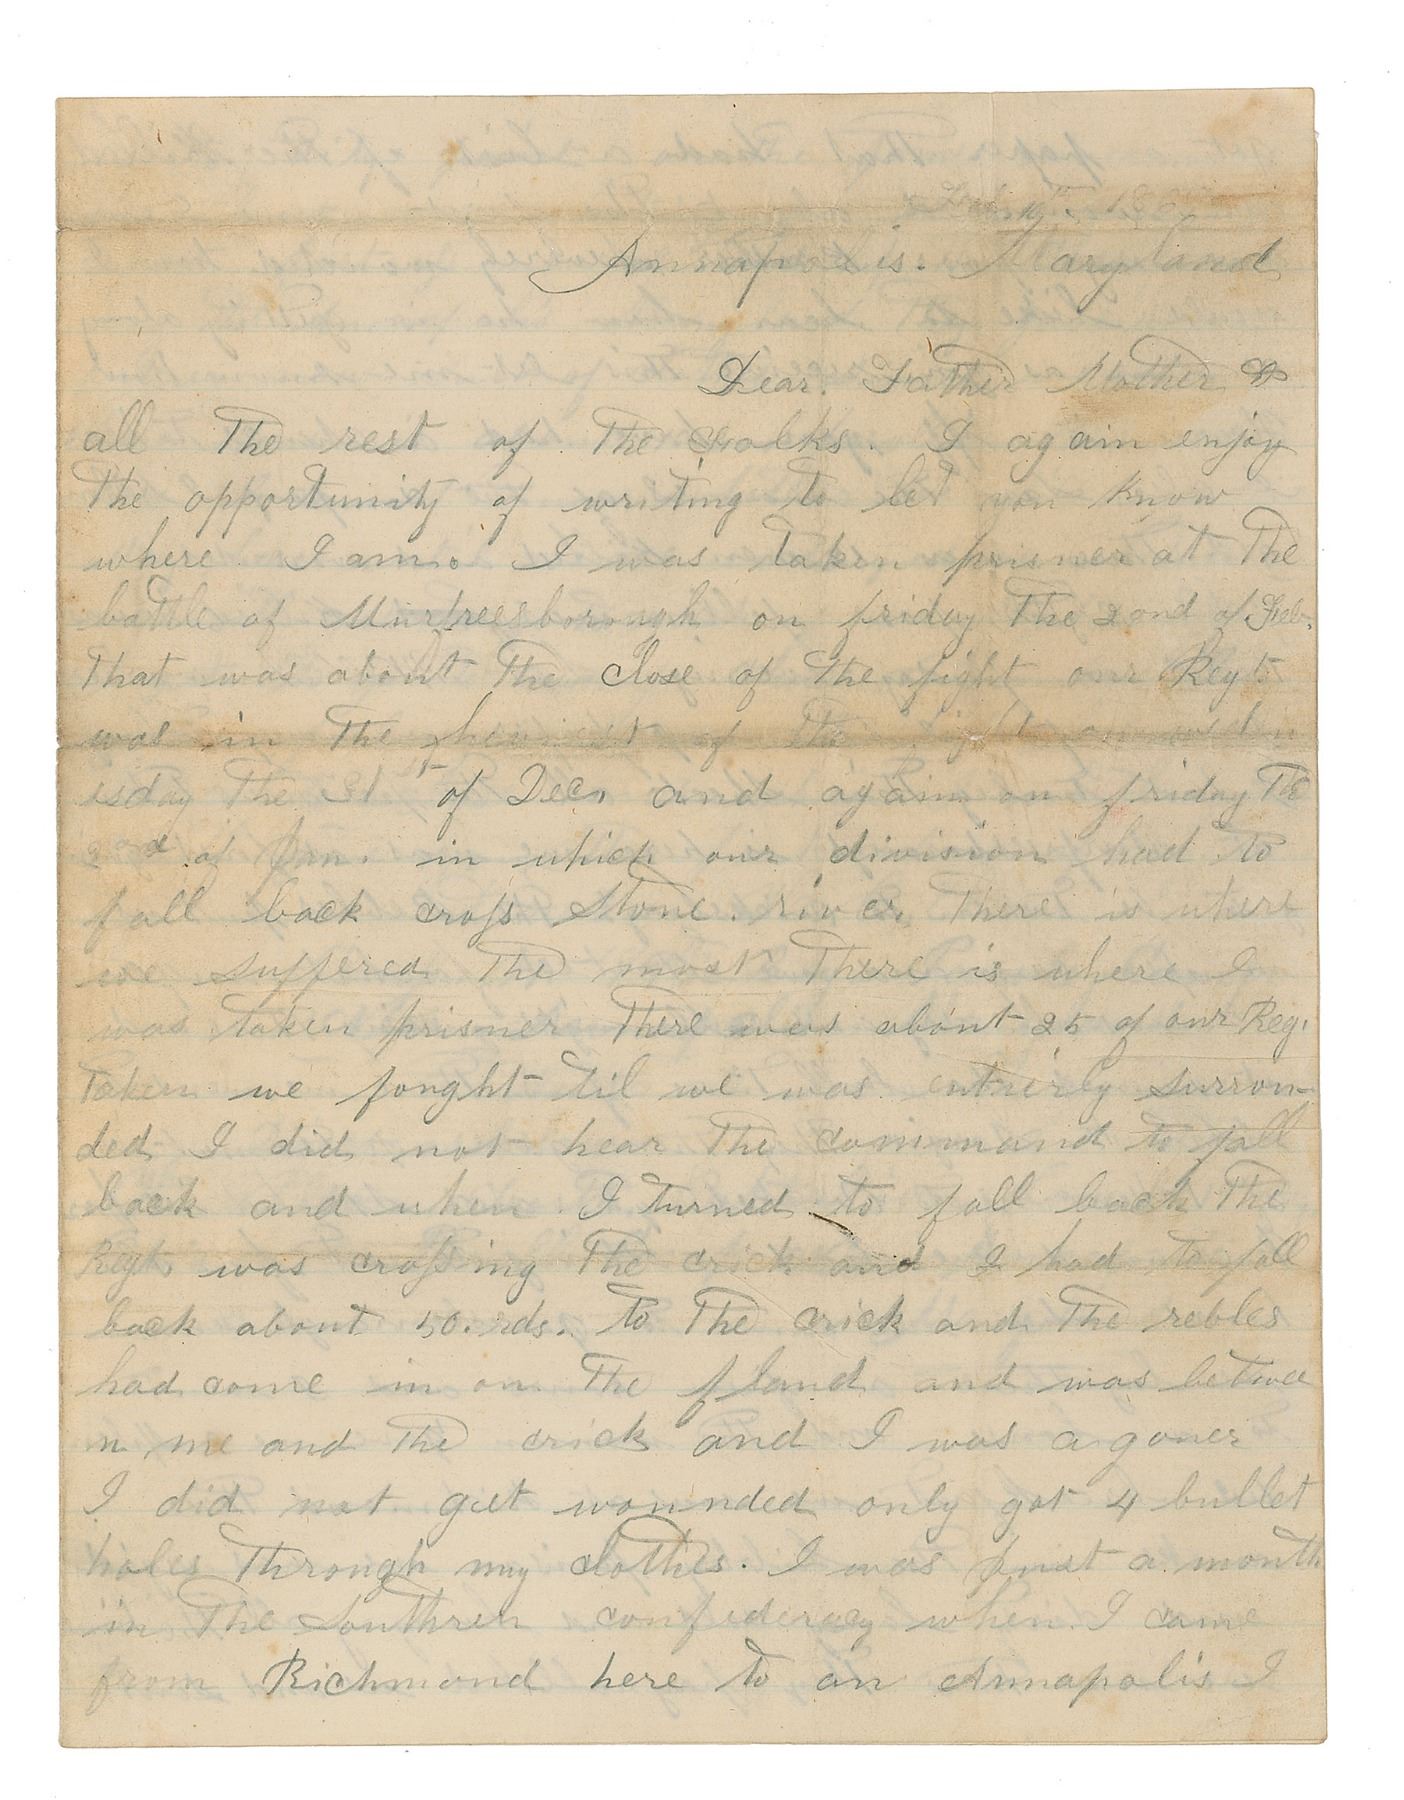 Feb. 10th 186
Annapolis. Maryland
Dear. Father Mother &
all The rest of The Folks. I again enjoy
The opportunity of writing to let you know
where I am. I was taken prisner at The
battle of Murfreesborough on friday The 2ond of Feb.
That was about The close of The fight our Regt
was in The heaviest of the fight on wedn
esday The 31st of Dec, and again on friday The
2ond of Jan. in which our division had to
fall back cross Stone. river. There is where
we suffered The most There is where I
was taken prisner There was about 25 of our Reg.
Taken we fought til we was entierly surroun
ded I did not hear The command to fall
back and when I turned to fall back The
Regt, was crossing The crick and I had to fall
back about 50. rds. to The crick and The rebles
had come in on The fland and was betwee
n me and The crick and I was a goner
I did not get wounded only got 4 bullet
holes Through my clothes. I was just a month
in The Southren confederacy when I came
from Richmond here to an Annapolis I